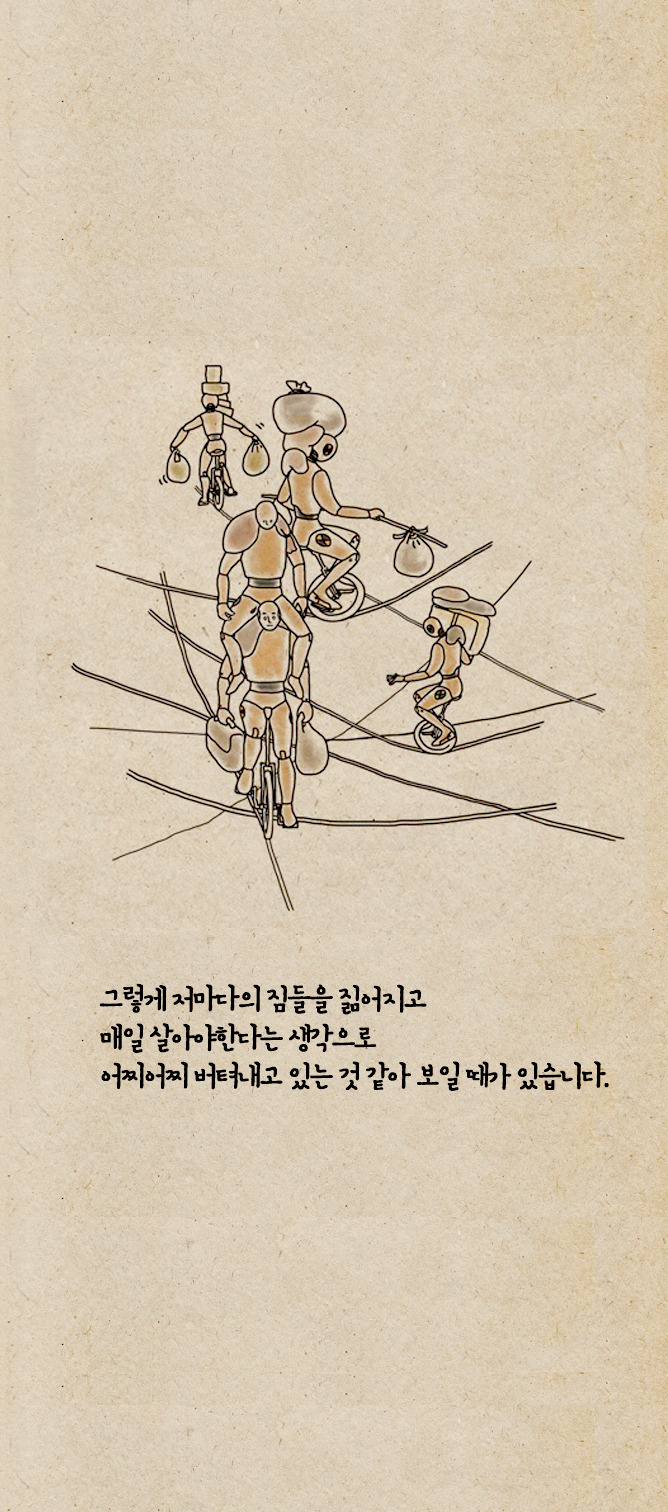 그렇게 저마다의 짐들을 짊어지고
매일 살아야한다는 생각으로
어찌어찌 버텨내고 있는 것 같아 보일 때가 있습니다.